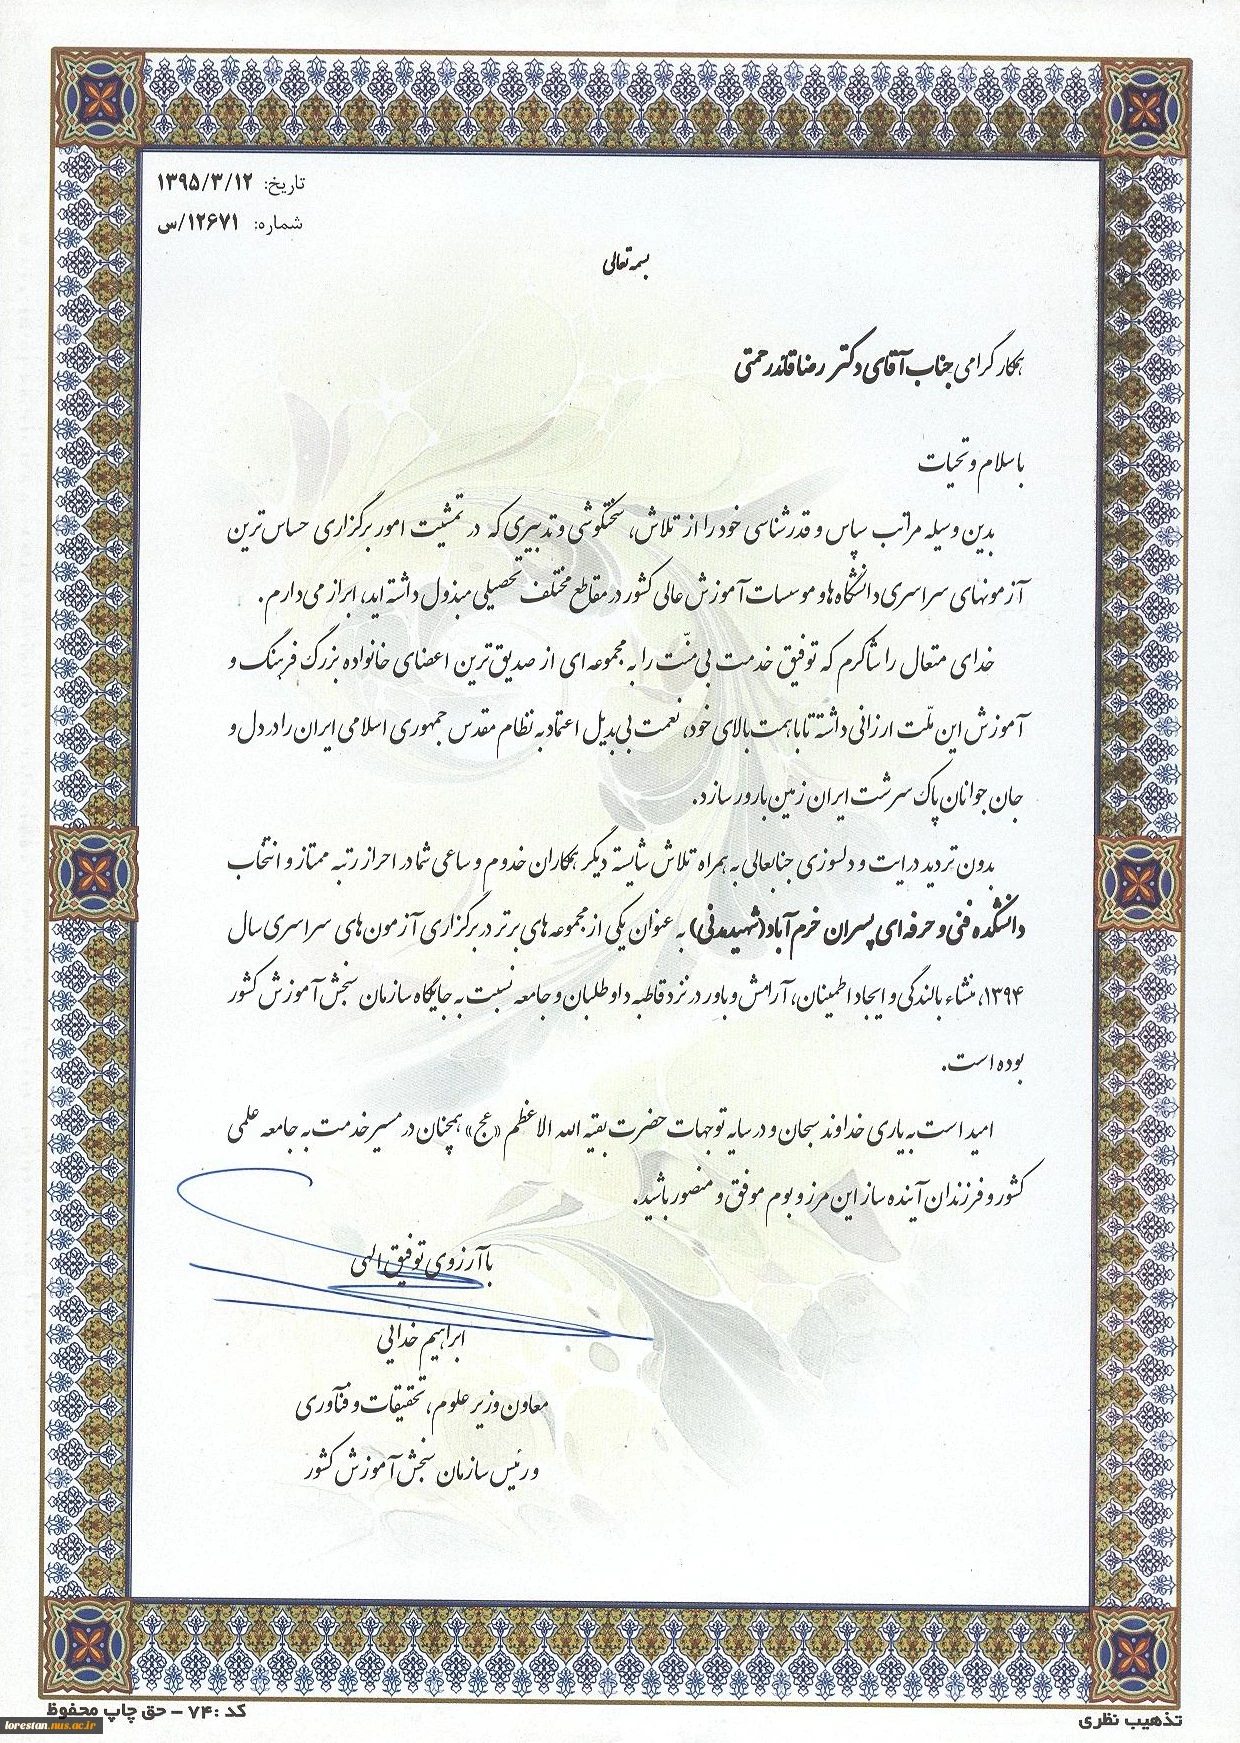 تاریخ: ۱۳۹۵/۳/۱۲
شماره: ۱۲۶۷۱/س
بسمه تعالی
همکار گرامی جناب آقای دکتر رضا قائدرحمتی
با سلام و تحیات
بدین وسیله مراتب سپاس و قدرشناسی خود را از تلاش، سختکوشی و تدبیری که در تمشیت امور برگزاری حساس ترین
آزمونهای سراسری دانشگاه ها و موسسات آموزش عالی کشور در مقاطع مختلف تحصیلی مبذول داشته اید، ابراز می دارم.
خدای متعال را شاکرم که توفیق خدمت بی منّت را به مجموعه ای از صدیق ترین اعضای خانواده بزرگ فرهنگ و
آموزش این ملّت ارزانی داشته تا با همت بالای خود، نعمت بی بدیل اعتماد به نظام مقدس جمهوری اسلامی ایران را در دل و
جان جوانان پاک سرشت ایران زمین بارور سازد.
بدون تردید درایت و دلسوزی جنابعالی به همراه تلاش شایسته دیگر همکاران خدوم و ساعی شما در احراز رتبه ممتاز و انتخاب
دانشکده فنی و حرفه ای پسران خرم آباد (شهیدمدنی) به عنوان یکی از مجموعه های برتر در برگزاری آزمون های سراسری سال
۱۳۹۴، منشاء بالندگی و ایجاد اطمینان، آرامش و باور در نزد قاطبه داوطلبان و جامعه نسبت به جایگاه سازمان سنجش آموزش کشور
بوده است.
امید است به یاری خداوند سبحان و در سایه توجهات حضرت بقیه الله الاعظم «عج» همچنان در مسیر خدمت به جامعه علمی
کشور و فرزندان آینده ساز این مرز و بوم موفق و منصور باشید.
با آرزوی توفیق الهی
ابراهیم خدایی
معاون وزیر علوم، تحقیقات و فنآوری
و رئیس سازمان سنجش آموزش کشور
تذهیب نظری
کد : ۷۴ - حق چاپ محفوظ
lorestan.nus.ac.ir